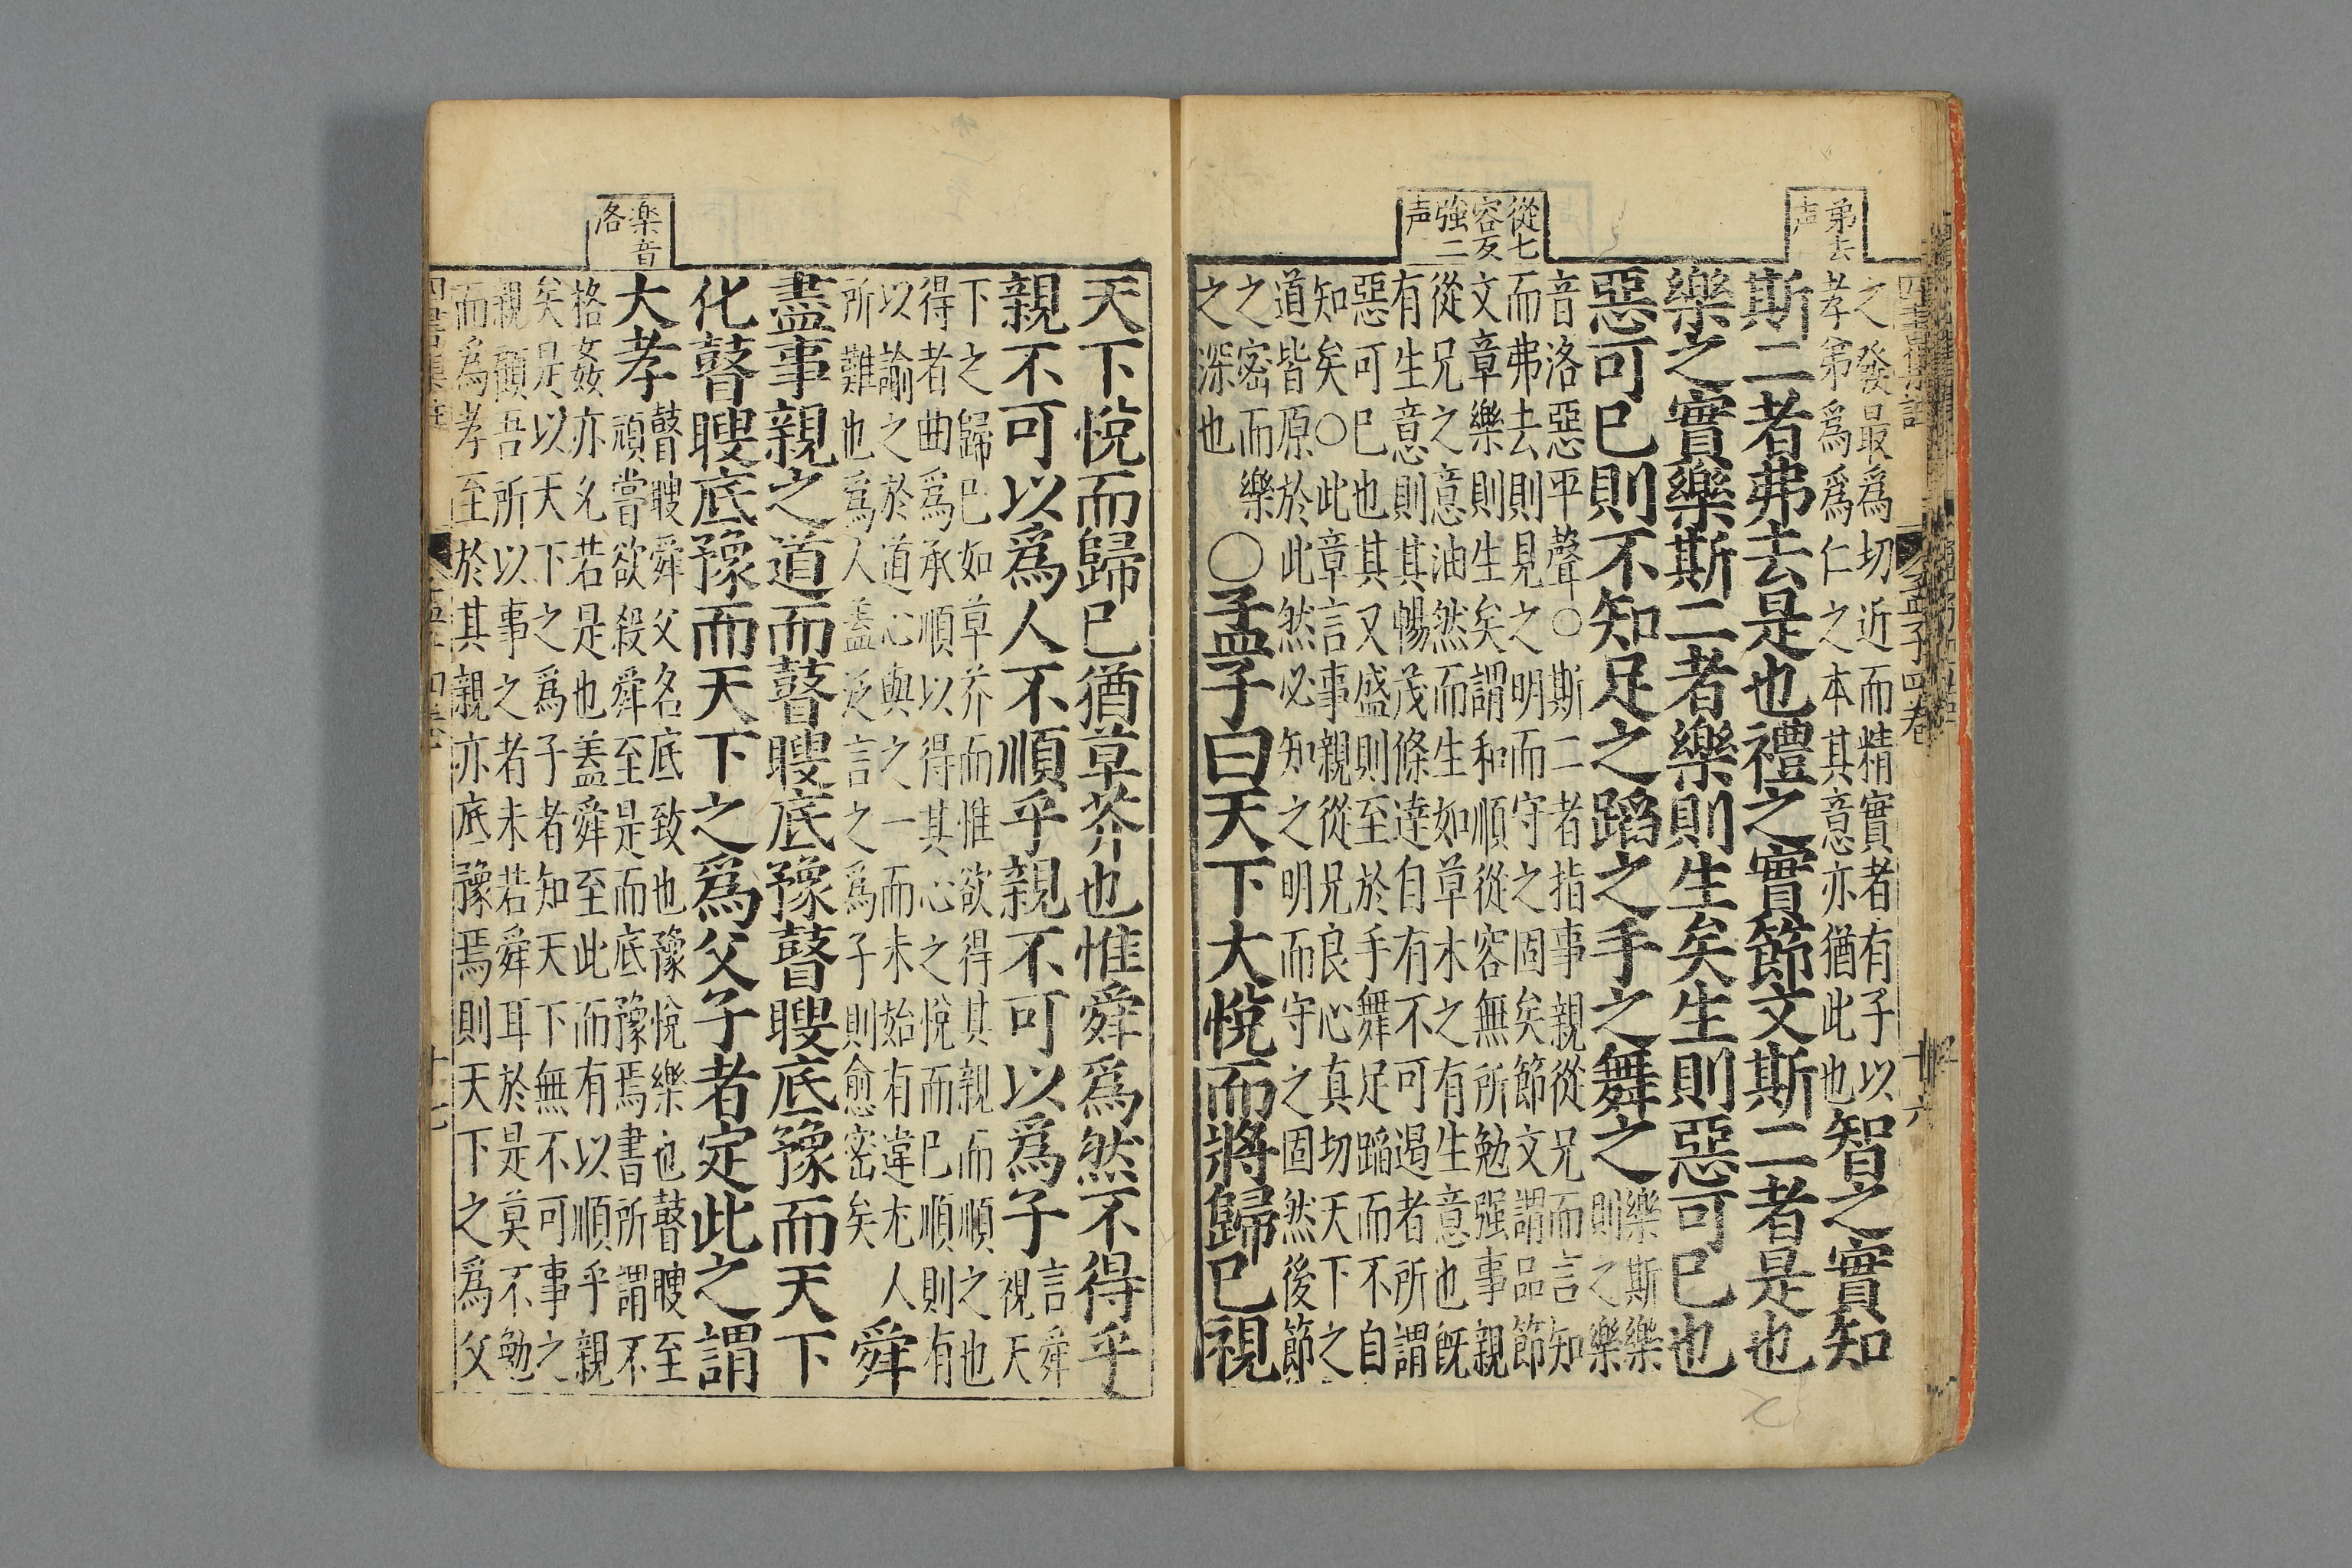 弟去
声
從七
容反
強二
声
之發最爲切近而精實者有子以
孝弟爲爲仁之本其意亦猶此也智之實知
斯二者弗去是也禮之實節文斯二者是也
樂之實樂斯二者樂則生矣生則惡可巳也
惡可巳則不知足之蹈之手之舞之樂斯樂
則之樂
音洛惡平聲○斯二者指事親從兄而言知
而弗去則見之明而守之固矣節文謂品節
文章樂則生矣謂和順從容無所勉强事親
從兄之意油然而生如草木之有生意也旣
有生意則其暢茂條達自有不可遏者所謂
惡可巳也其又盛則至於手舞足蹈而不自
知矣○此章言事親從兄良心真切天下之
道皆原於此然必知之明而守之固然後節
之密而樂
之深也
○孟子曰天下大悅而將歸巳視
四書集註
孟子四卷
十六
楽音
洛
天下悅而歸巳猶草芥也惟舜爲然不得乎
親不可以爲人不順乎親不可以爲子言舜
視天
下之歸巳如草芥而惟欲得其親而順之也
得者曲爲承順以得其心之悅而巳順則有
以諭之於道心與之一而未始有違尤人
所難也爲人盖泛言之爲子則愈密矣
舜
盡事親之道而瞽瞍底豫瞽瞍底豫而天下
化瞽瞍底豫而天下之爲父子者定此之謂
大孝瞽瞍舜父名底致也豫悅樂也瞽瞍至
頑嘗欲殺舜至是而底豫焉書所謂不
格姦亦允若是也盖舜至此而有以順乎親
矣是以天下之爲子者知天下無不可事之
親顧吾所以事之者未若舜耳於是莫不勉
而爲孝至於其親亦底豫焉則天下之爲父
十七